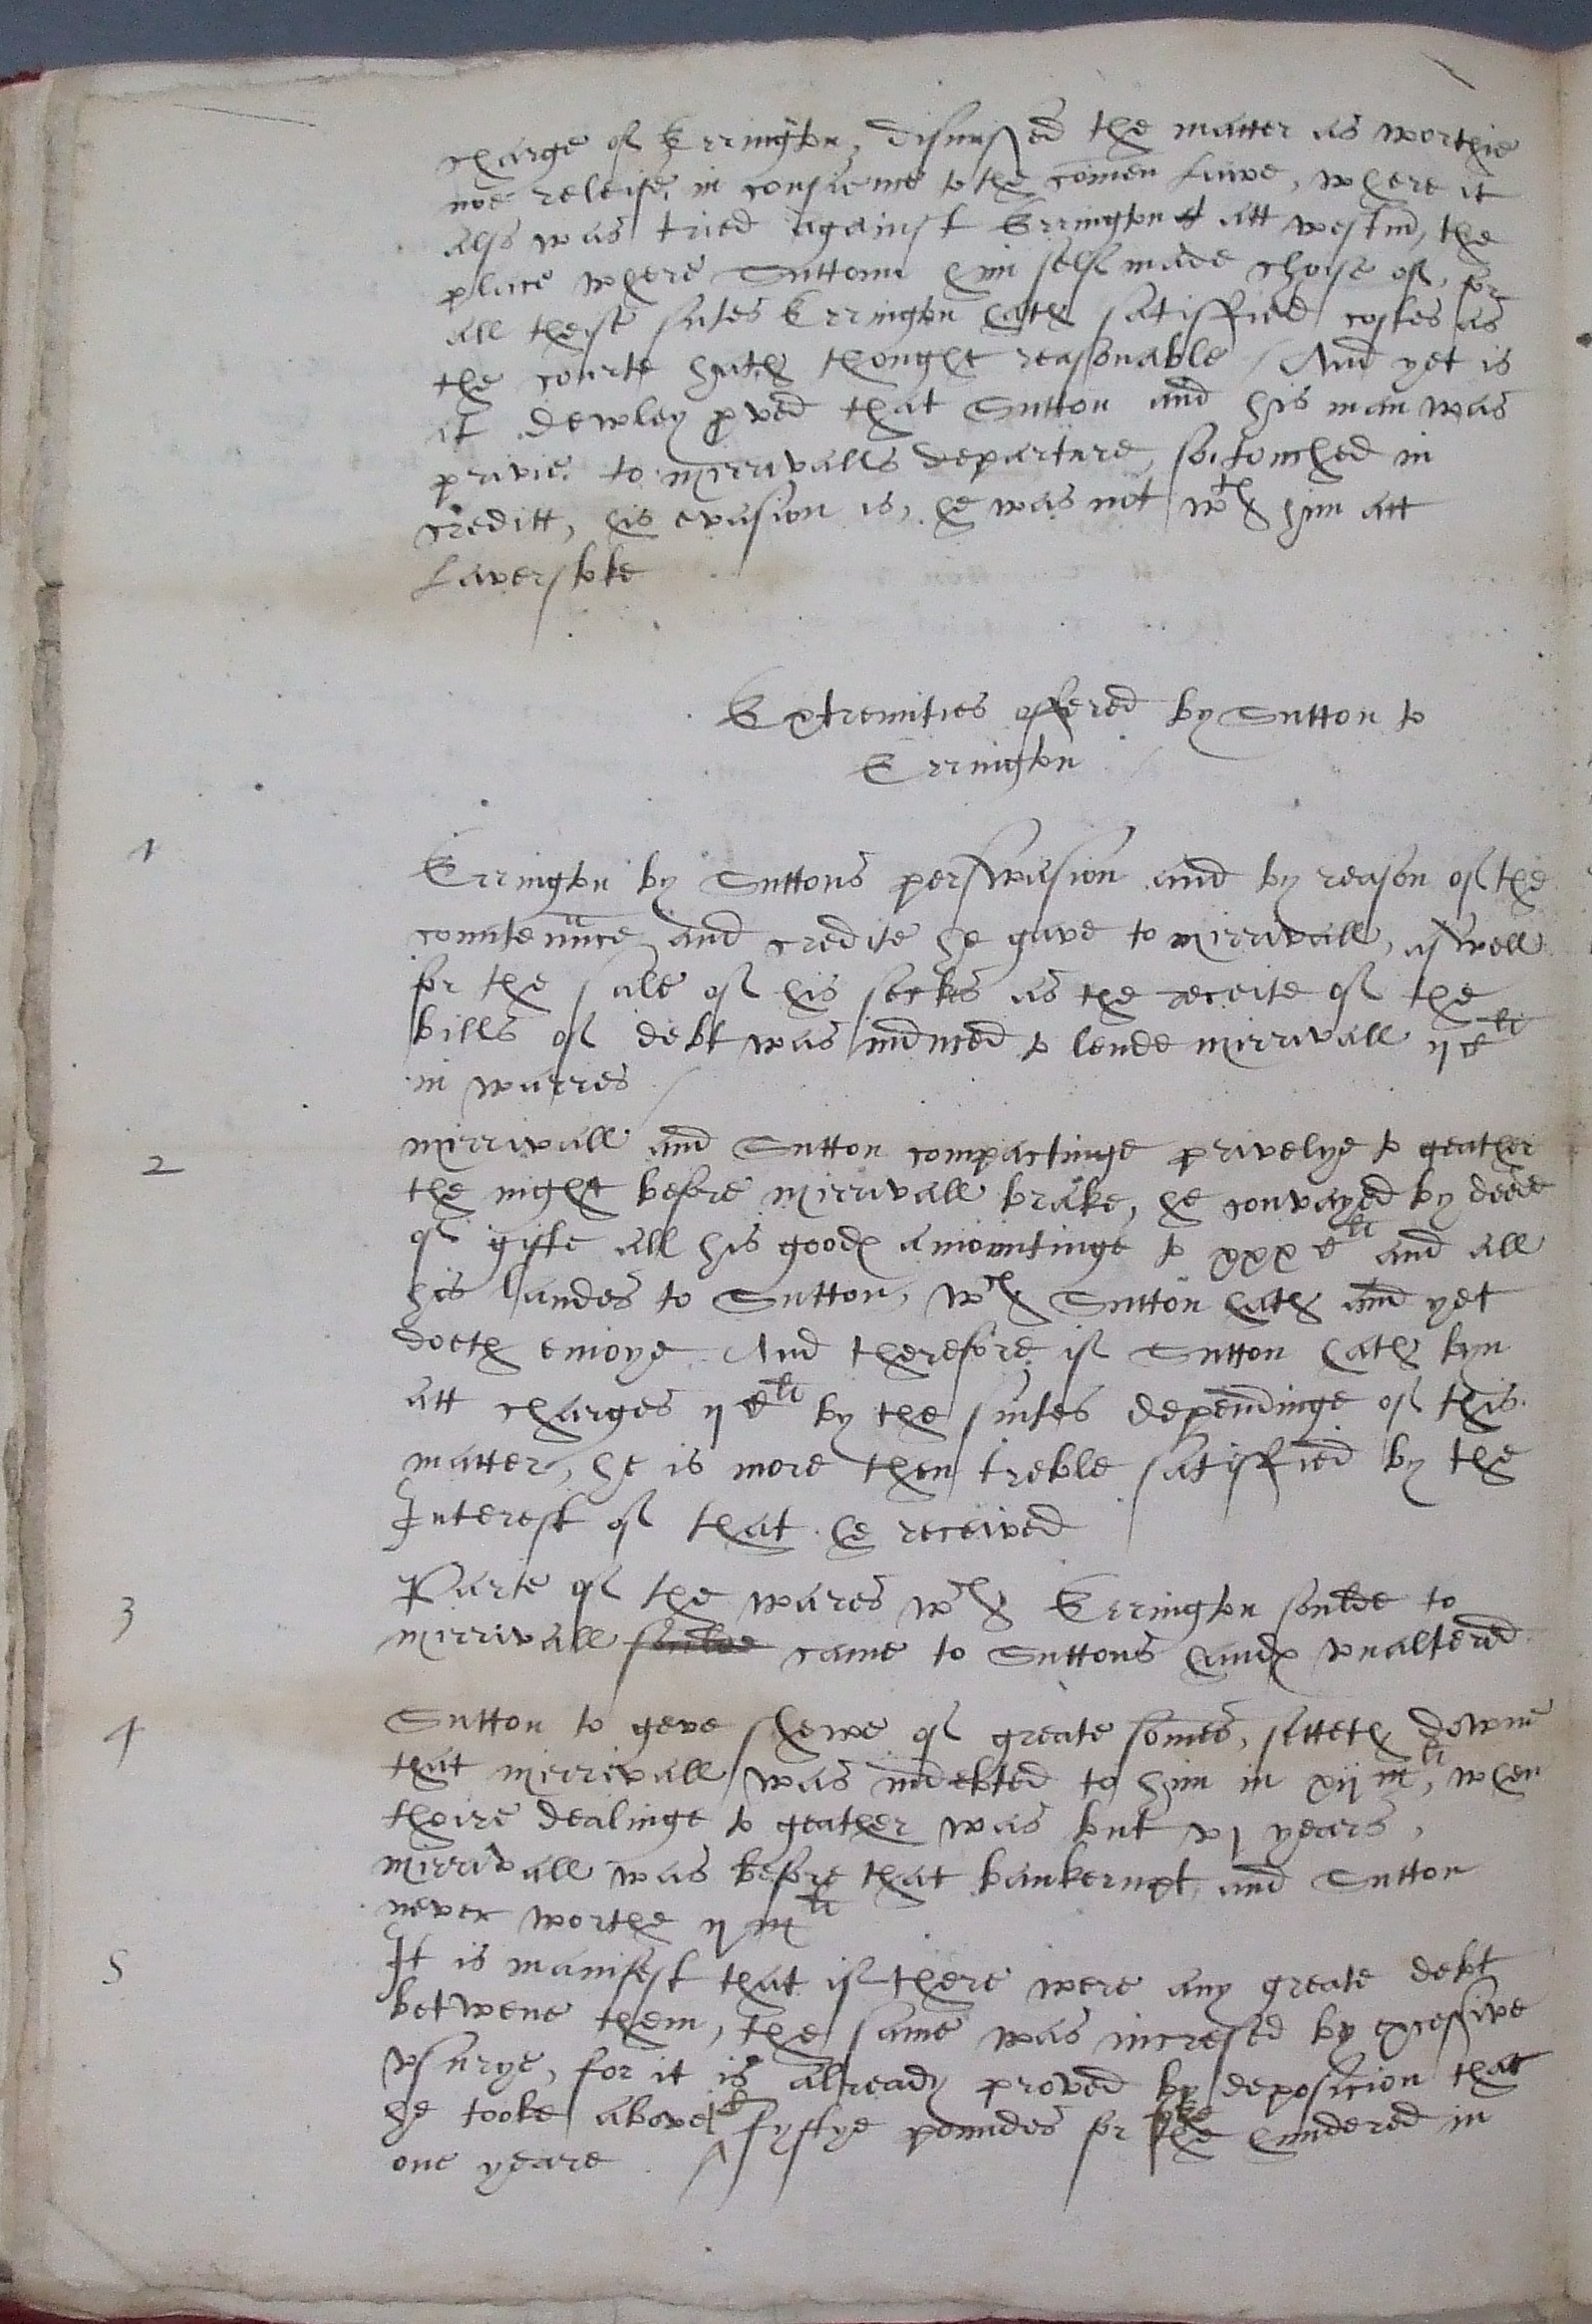 charge of Errington, dismissed the matter as worthie
noe releife, in conscience to the comen Lawe, where it
also was tried against Errington att westm, the
place where Suttonn him self made choise of, for
all theise sutes Errington hath satisffied costes as
the courte hath thought reasonable / And yet is
it dewley pved that Sutton and his man was
privie to mirrivalls departure, so touched in
creditt, his evasion is, he was not wth him att
Laverstoke
Extremities offered by Sutton to
Errington
1 Errington by Suttons perswasion and by reason of the
countennce and credite he gave to mirrivall, aswell
for the sale of his as the receite of the
bills of debt was induced to lende mirrivall ij c li
in warres
2 mirrivall and Sutton compactinge privelye to geather
the night before mirrivall brake, he convayed by deede
of gifte all his goodes amountinge to xxx c li and all
his landes to Sutton, wch Sutton hath and yet
doeth enioye. And therefore if Sutton hath byn
att charges ij c li by the suites dependinge of this
matter, he is more then treble satisffied by the
Interest of that he received
3 Parte of the wares wch Errington soulde to
mirrivall soulde came to Suttons handes vnaltered
4 Sutton to geve shewe of greate somes, setteth downe
that mirrivall was indebted to him in xij m li, when
theire dealinge to geather was but vj years,
mirrivall was before that bankerupt, and Sutton
never worthe ij m li
5 It is manifest that if there were any greate debt
betwene them, the same was incresed by excessive
vsurye, for it is already proved by deposicion that
he tooke above fyftye poundes for the hundered in
one yeare